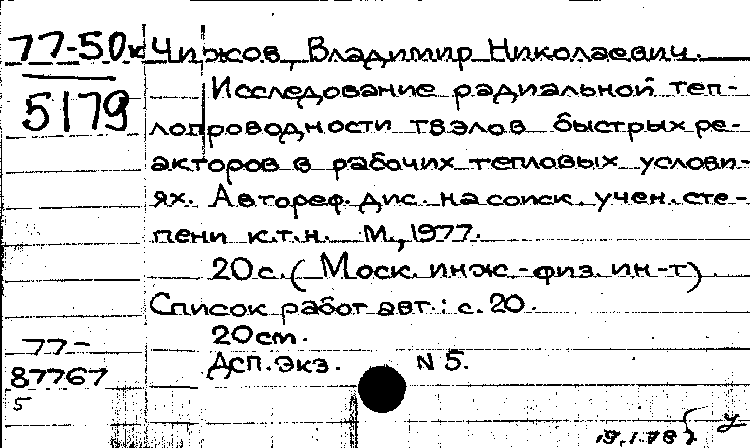 77-50к
5179
Чижов, Владимир Николаевич.
Исследование радиальной теп-
лопроводности твэлов быстрых ре-
акторов в рабочих тепловых услови-
ях. Автореф. дис. на соиск. учен. сте-
пени к.т.н. М., 1977.
20 с. (Моск. инж.-физ. ин-т)
Список работ авт.: с. 20.
20 см.
Дсп. Экз. N 5.
77-
87767
5
19.1.78